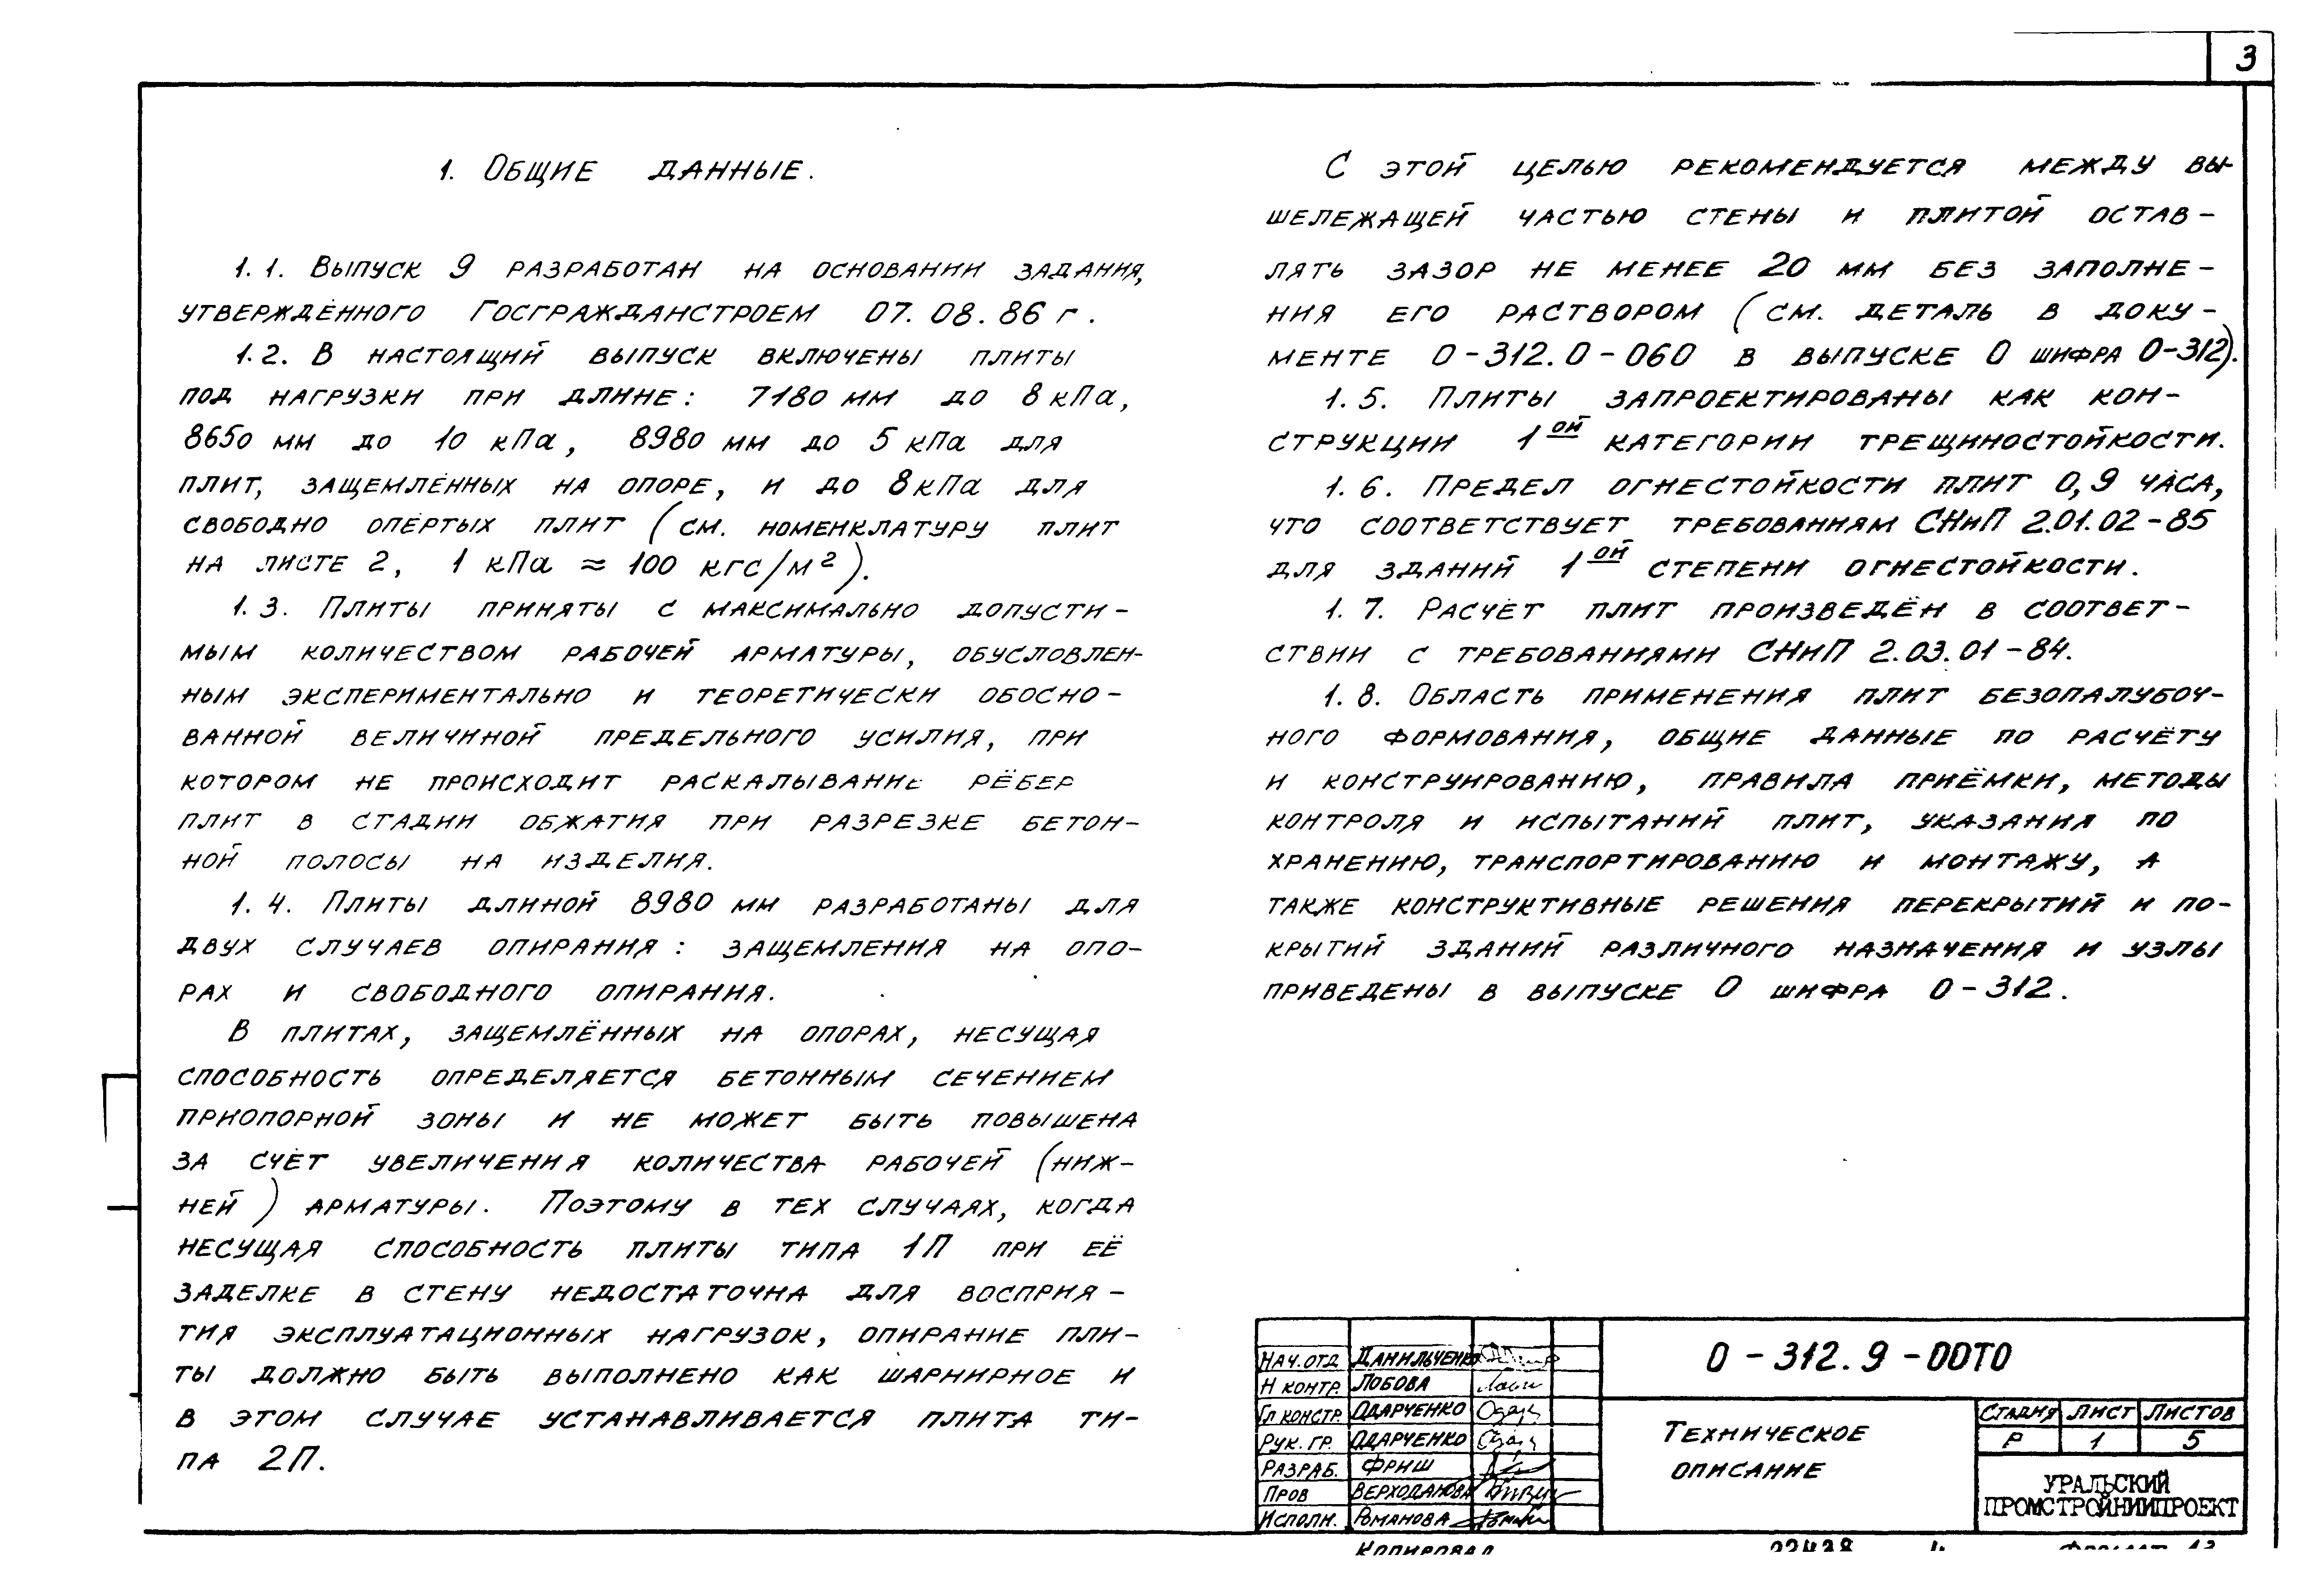 3
1. Общие данные.
1.1. Выпуск 9 разработан на основании задания,
утверждённого Госгражданстроем 07.08.86 г.
1.2. В настоящий выпуск включены плиты
под нагрузки при длине: 7180 мм до 8 кПа,
8650 мм до 10 кПа, 8980 мм до 5 кПа для
плит, защемлённых на опоре, и до 8 кПа для
свободно опёртых плит (см. номенклатуру плит
на листе 2, 1 кПа ≈ 100 кгс/м²).
1.3. Плиты приняты с максимально допусти-
мым количеством рабочей арматуры, обусловлен-
ным экспериментально и теоретически обосно-
ванной величиной предельного усилия, при
котором не происходит раскалывание рёбер
плит в стадии обжатия при разрезке бетон-
ной полосы на изделия.
1.4. Плиты длиной 8980 мм разработаны для
двух случаев опирания: защемления на опо-
рах и свободного опирания.
В плитах, защемлённых на опорах, несущая
способность определяется бетонным сечением
приопорной зоны и не может быть повышена
за счёт увеличения количества рабочей (ниж-
ней) арматуры. Поэтому в тех случаях, когда
несущая способность плиты типа 1П при её
заделке в стену недостаточна для восприя-
тия эксплуатационных нагрузок, опирание пли-
ты должно быть выполнено как шарнирное и
в этом случае устанавливается плита ти-
па 2П.
С этой целью рекомендуется между вы-
шележащей частью стены и плитой остав-
лять зазор не менее 20 мм без заполне-
ния его раствором (см. деталь в доку-
менте 0-312.0-060 в выпуске 0 шифра 0-312).
1.5. Плиты запроектированы как кон-
струкции 1ой категории трещиностойкости.
1.6. Предел огнестойкости плит 0,9 часа,
что соответствует требованиям СНиП 2.01.02-85
для зданий 1ой степени огнестойкости.
1.7. Расчёт плит произведён в соответ-
ствии с требованиями СНиП 2.03.01-84.
1.8. Область применения плит безопалубоч-
ного формования, общие данные по расчёту
и конструированию, правила приёмки, методы
контроля и испытаний плит, указания по
хранению, транспортированию и монтажу, а
также конструктивные решения перекрытий и по-
крытий зданий различного назначения и узлы
приведены в выпуске 0 шифра 0-312.
0-312.9-00ТО
Нач. отд Данильченко
Н контр. Лобова
Гл констр. Одарченко
Рук. гр. Одарченко
Разраб. Фриш
Пров Верходанова
Исполн. Романова
Техническое
описание
Стадия Лист Листов
Р 1 5
УРАЛЬСКИЙ
ПРОМСТРОЙНИИПРОЕКТ
Копировал
22428 4
Формат А3